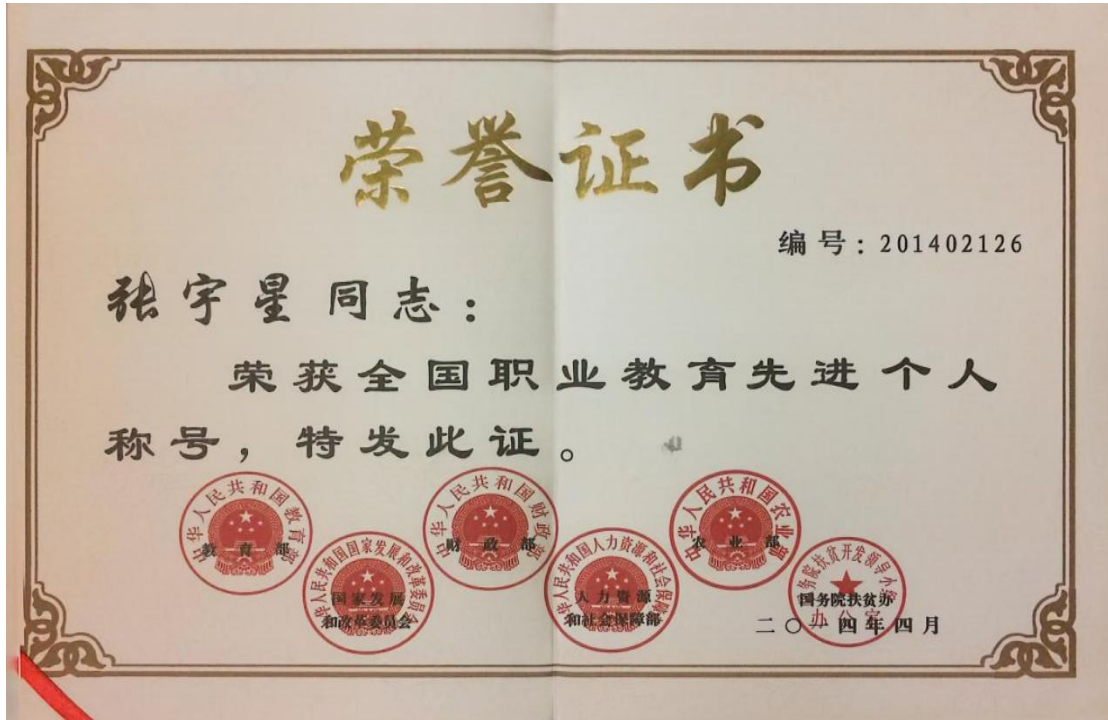 荣誉证书
编号：201402126
张宇星同志：
荣获全国职业教育先进个人
称号，特发此证。
中华人民共和国教育部
教育部
中华人民共和国国家发展和改革委员会
国家发展
和改革委员会
中华人民共和国财政部
财政部
中华人民共和国人力资源和社会保障部
人力资源
和社会保障部
中华人民共和国农业部
农业部
国务院扶贫开发领导小组
办公室
国务院扶贫办
二〇一四年四月